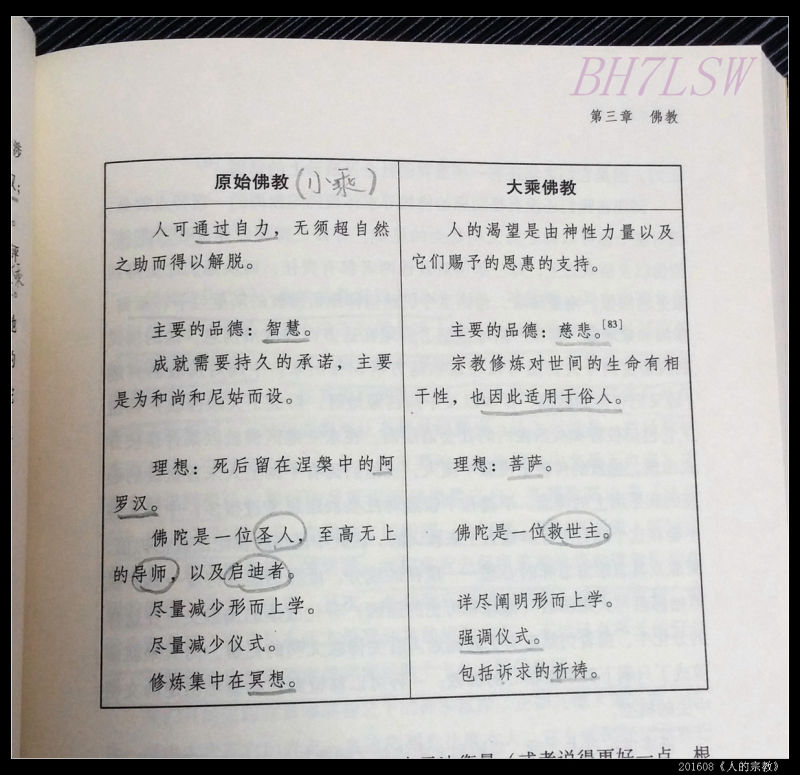 BH7LSW
第三章 佛教
原始佛教(小乘)
大乘佛教
人可通过自力，无须超自然
之助而得以解脱。
人的渴望是由神性力量以及
它们赐予的恩惠的支持。
主要的品德：智慧。
主要的品德：慈悲。[83]
成就需要持久的承诺，主要
是为和尚和尼姑而设。
宗教修炼对世间的生命有相
干性，也因此适用于俗人。
理想：死后留在涅槃中的阿
罗汉。
理想：菩萨。
佛陀是一位圣人，至高无上
的导师，以及启迪者。
佛陀是一位救世主。
尽量减少形而上学。
详尽阐明形而上学。
尽量减少仪式。
强调仪式。
修炼集中在冥想。
包括诉求的祈祷。
（或者说得更好一点，根
201608《人的宗教》